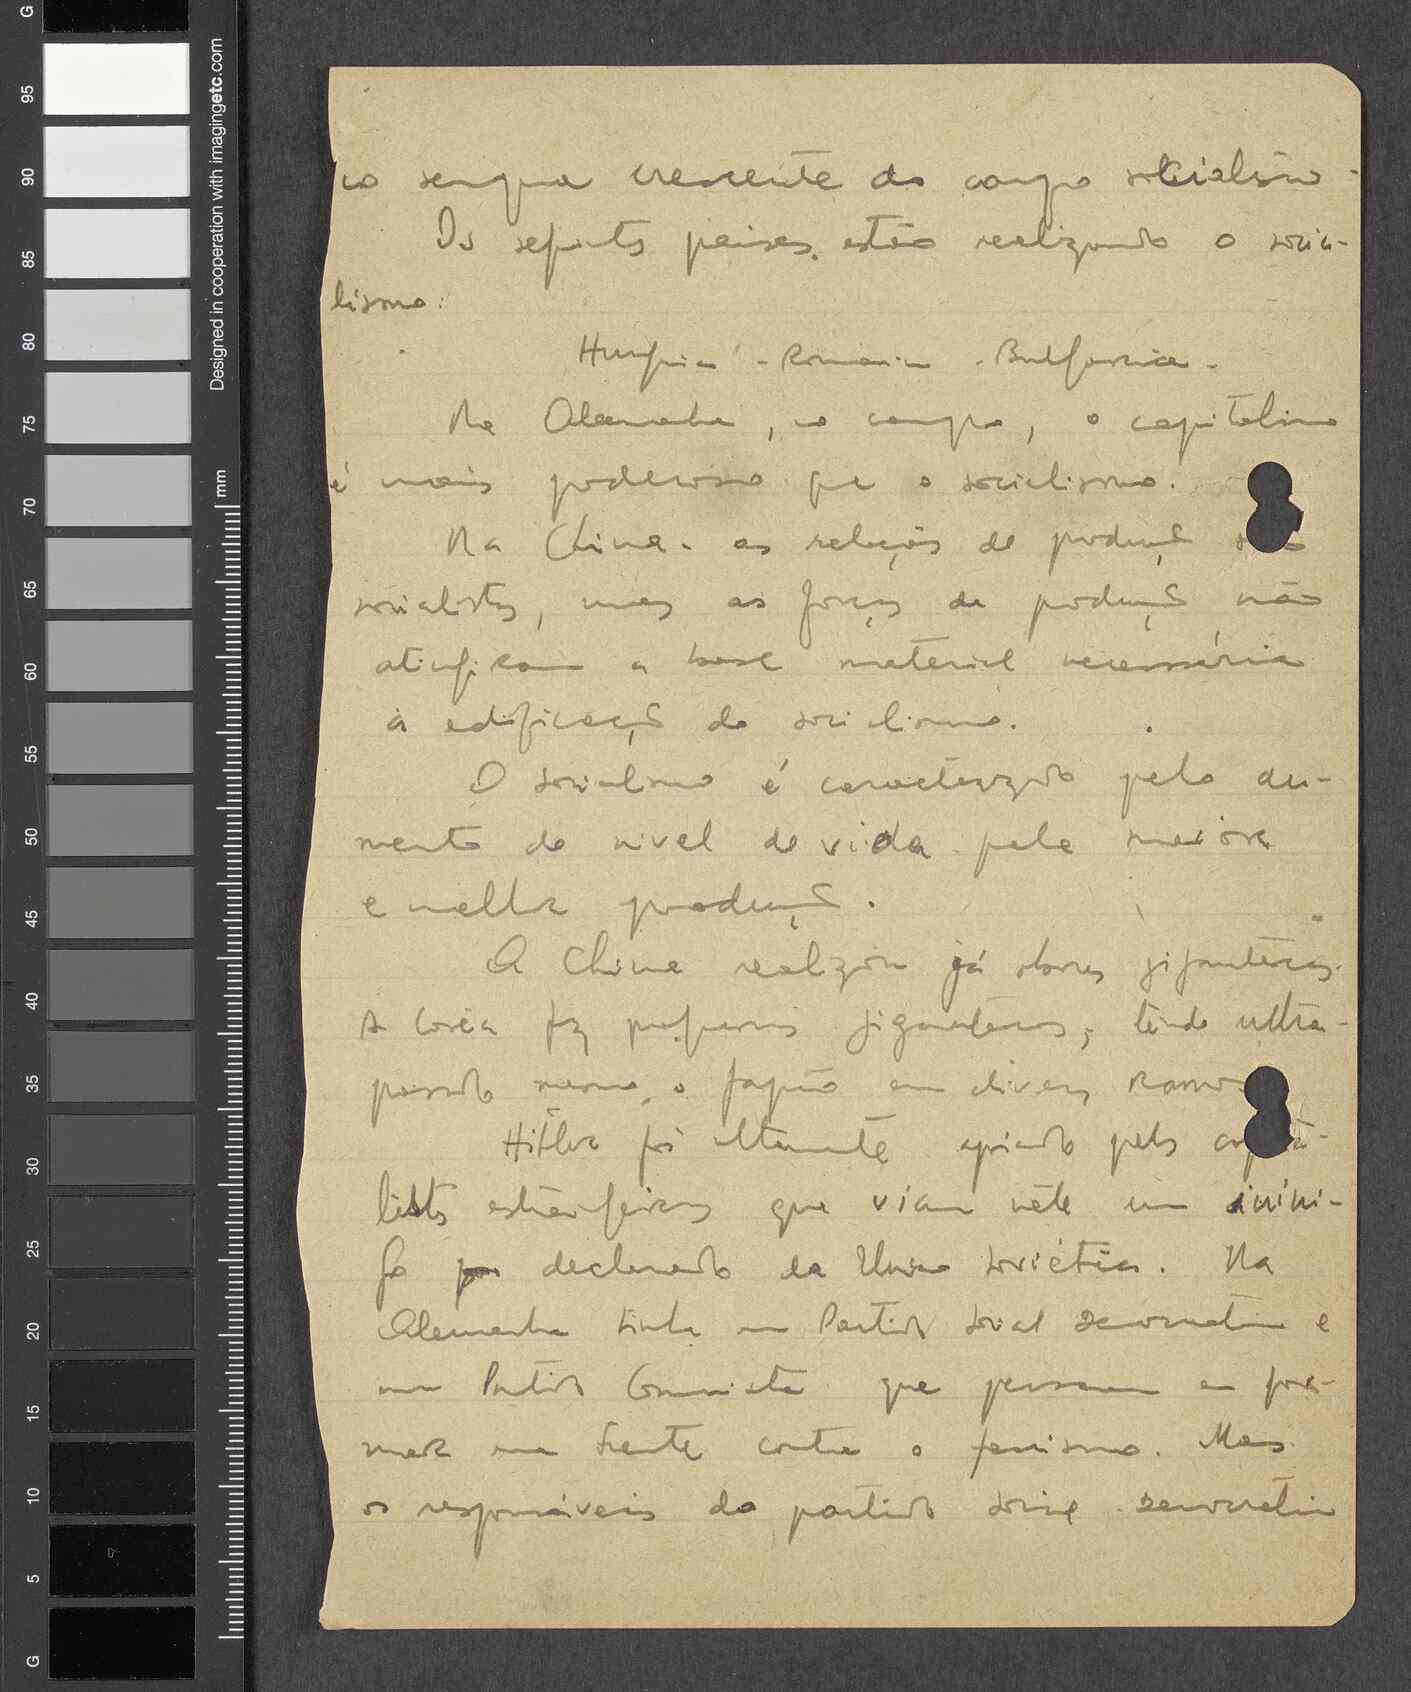 sempre crescente do campo socialismo.
Os seguintes países estão realizando o socia-
lismo:
Hungria - Romania - Bulgaria -
Na Alemanha, no campo, o capitalismo
é mais poderoso que o socialismo.
Na China - as relações de produção são
socialistas, mas as forças de produção não
atingiram a base material necessária
à edificação do socialismo.
O socialismo é caracterizado pelo au-
mento do nivel de vida pela maior
e melhor produção.
A China realizou já obras gigantescas.
A Coréa fez progressos gigantescos, tendo ultra-
passado mesmo o Japão em diversos ramos
Hitler foi altamente apoiado pelos capita-
listas estrangeiros que viam nêle um inimi-
go declarado da União Soviética. Na
Alemanha tinha um Partido Social democratico e
um Partido Comunista que pensaram em for-
mar uma frente contra o fascismo. Mas
os responsáveis do partido social democratico
G
95
90
85
80
75
70
65
60
55
50
45
40
35
30
25
20
15
10
5
G
mm
Designed in cooperation with imagingetc.com